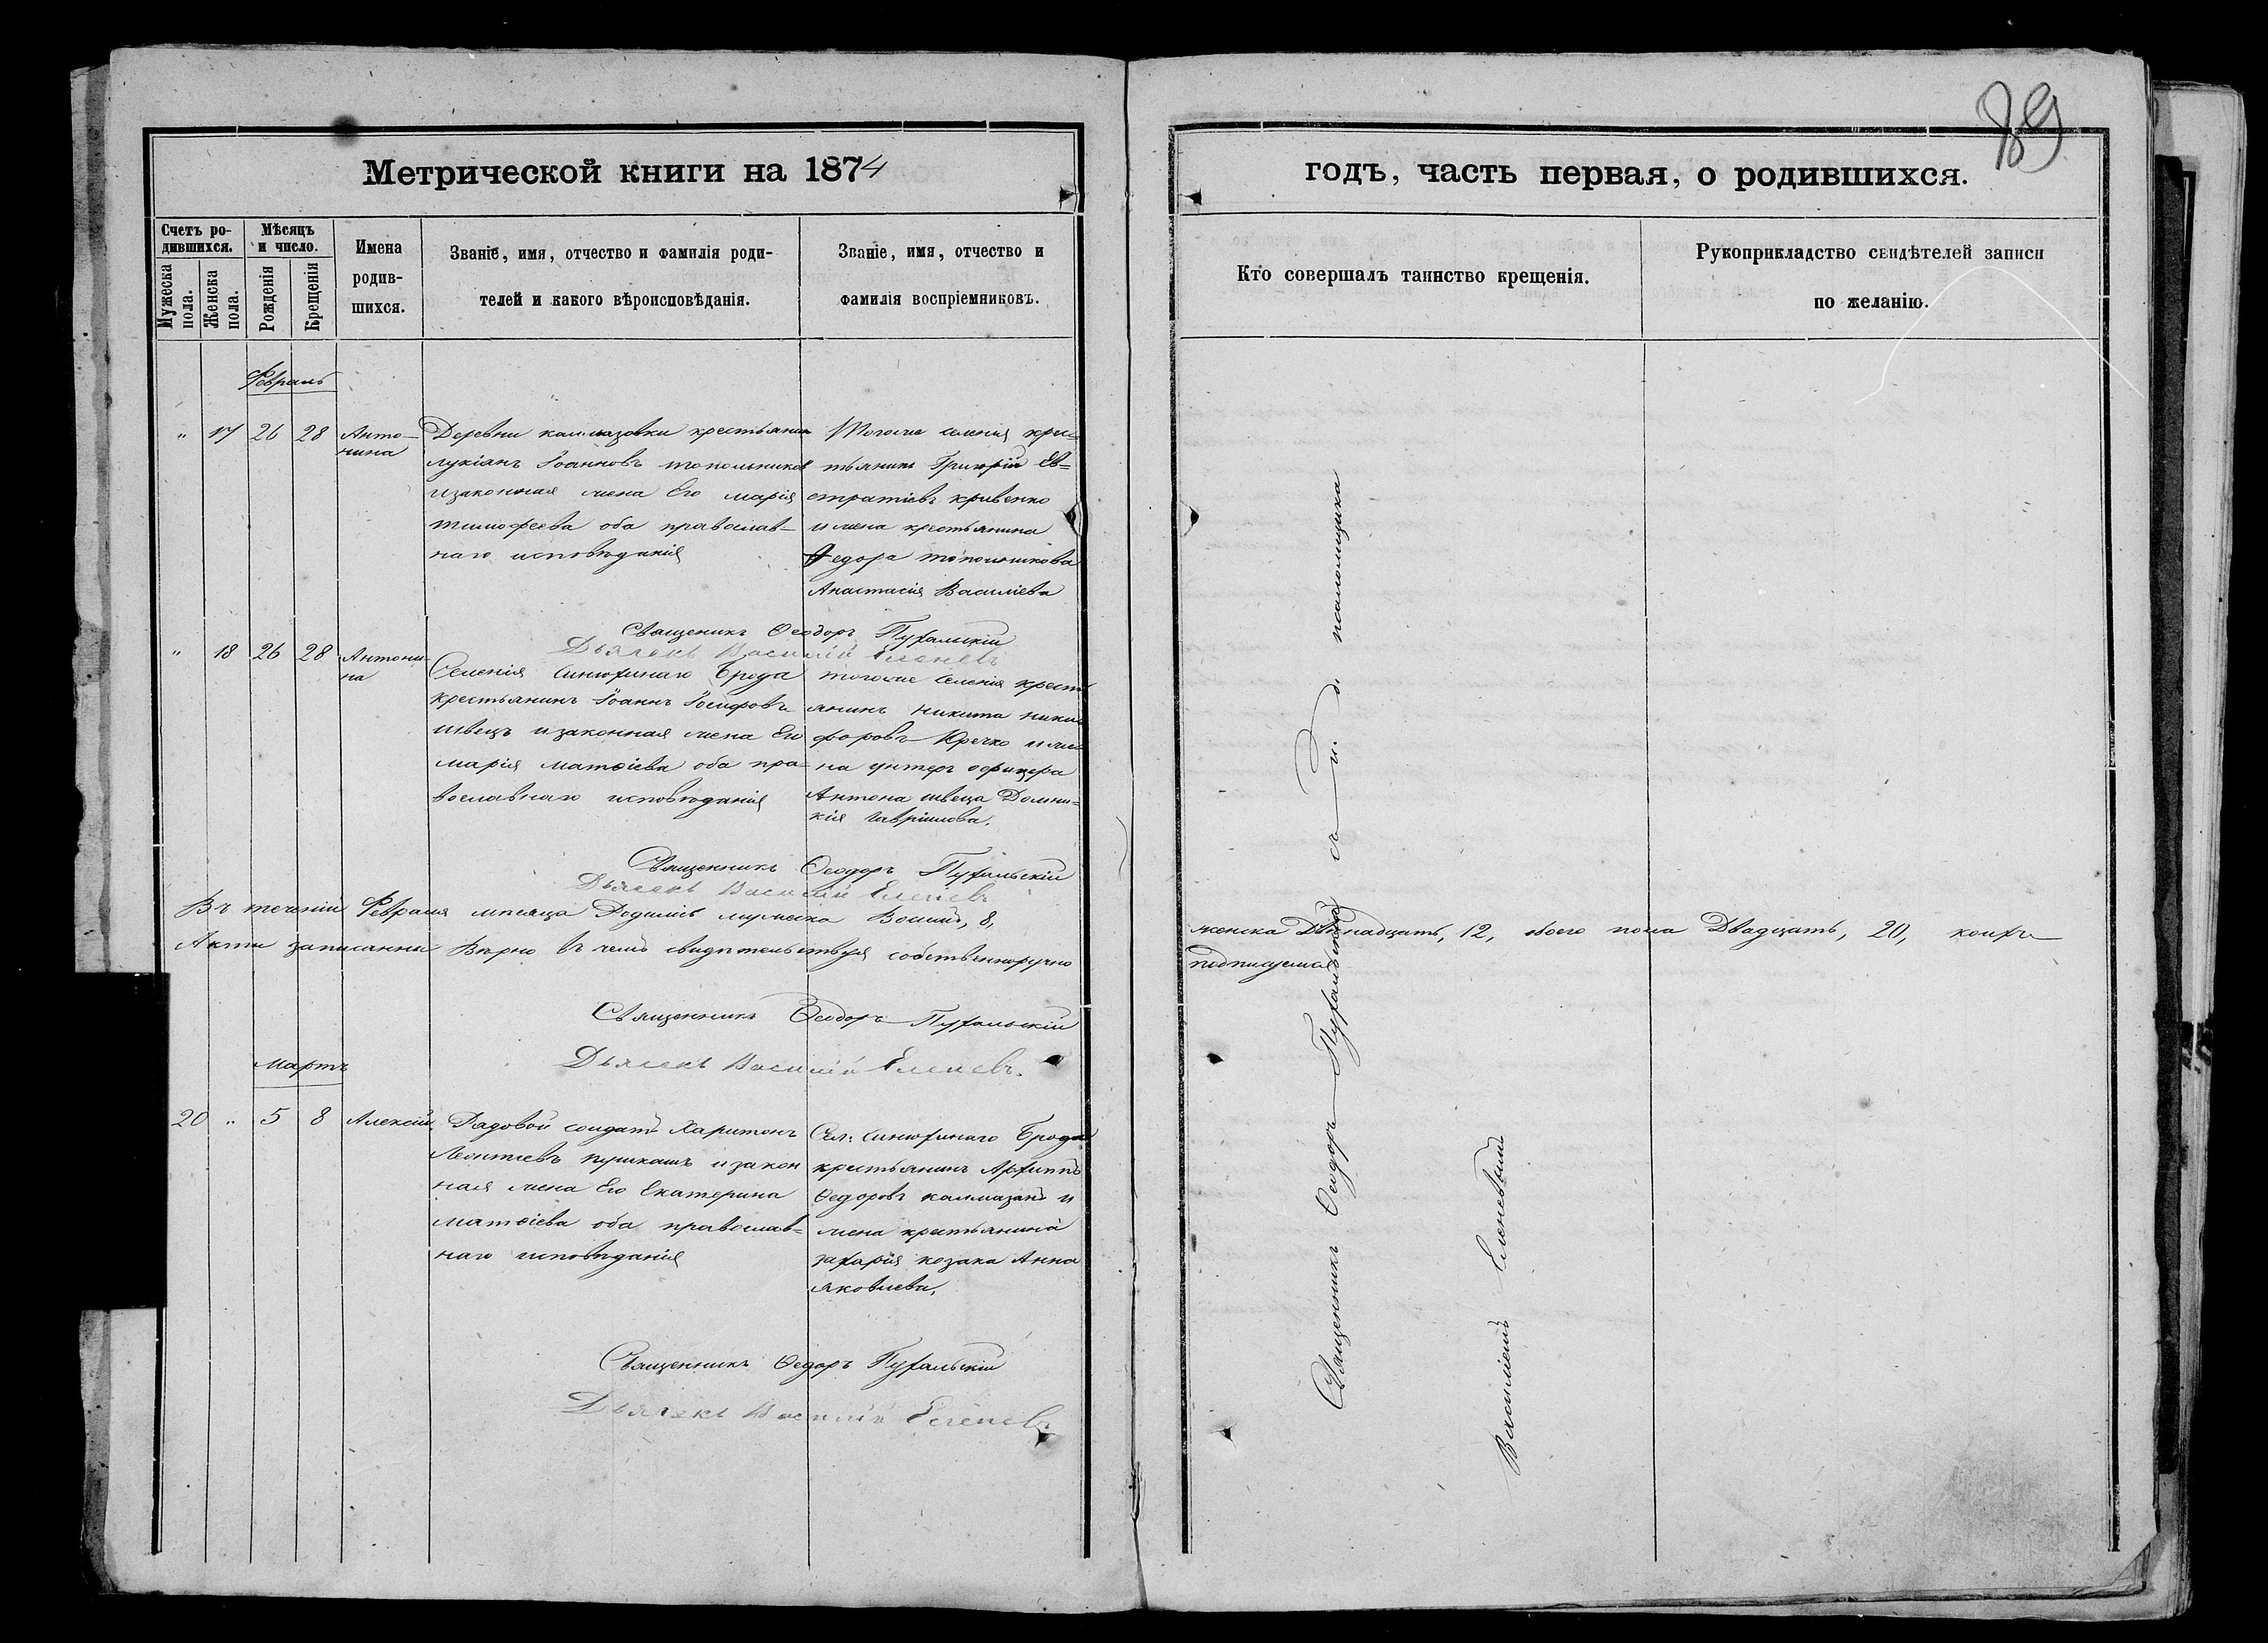 89
Метрической книги на 1874
годъ, часть первая, о родившихся.
Счетъ ро-
дившихся.
Мѣсяцъ
и число.
Мужеска пола.
Женска пола.
Рожденія
Крещенія
Имена
родив-
шихся.
Званіе, имя, отчество и фамилія роди-
телей и какого вѣроисповѣданія.
Званіе, имя, отчество и
фамилія воспріемниковъ.
Кто совершалъ таинство крещенія.
Рукоприкладство свидѣтелей записи
по желанію.
Февраль
" 17 26 28
Анто-
нина
Деревни калмазовки крестьянин
лукіанъ Іоанновъ топольников
и законная жена Его марія
тимофеева оба православ-
наго исповѣданія
Тогоже селенія крес=
тьянинъ Григорій Ев=
стратіевъ кривенко
и жена крестьянина
Федора топольникова
Анастасія Василіева
Священикъ Ѳеодоръ Пухальскій
Дьячекъ Василій Еленевъ
" 18 26 28
Антони-
на
Селенія Синюхинаго Брода
крестьянинъ Іоаннъ Іосифовъ
швецъ и законная жена Его
марія матѳіева оба пра=
вославнаго исповѣданія
тогоже селенія кресть
янинъ никита ники
форовъ Кречко и же
на унтеръ офицера
Антона швеца Домни=
кія гавріилова.
Священникъ Ѳеодоръ Пухальскій
Дьячекъ Василій Еленевъ
Въ теченіи Февраля мѣсяца Родилось мужеска Восимь, 8,
женска Двѣнадцать, 12, обоего пола Двадцать, 20, коихъ
Акты записанны Вѣрно въ чемъ свидѣтельствуя собственноручно
подписуемся
Священникъ Ѳеодоръ Пухальскій
Дьячекъ Василій Еленевъ.
мартъ
20 " 5 8
Алексій.
Рядовой солдатъ Харитонъ
Леонтіевъ пушкашъ и закон
ная жена Его Екатерина
матѳіева оба православ=
наго исповѣданія
Сел: Синюхинаго Брода
крестьянинъ Архиппъ
Ѳедоровъ калмазанъ и
жена крестьянина
захарія козака Анна
яковлева.
Священникъ Ѳедоръ Пухальскій
Дьячекъ Василій Еленевъ
Священникъ Ѳеодоръ Пухальскій съ и. д. псаломщика
Василіемъ Еленевымъ